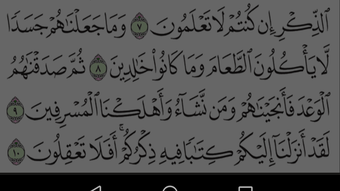 ٱلذِّكۡرِ إِن كُنتُمۡ لَا تَعۡلَمُونَ ٧ وَمَا جَعَلۡنَٰهُمۡ جَسَدٗا
لَّا يَأۡكُلُونَ ٱلطَّعَامَ وَمَا كَانُواْ خَٰلِدِينَ ٨ ثُمَّ صَدَقۡنَٰهُمُ
ٱلۡوَعۡدَ فَأَنجَيۡنَٰهُمۡ وَمَن نَّشَآءُ وَأَهۡلَكۡنَا ٱلۡمُسۡرِفِينَ ٩
لَقَدۡ أَنزَلۡنَآ إِلَيۡكُمۡ كِتَٰبٗا فِيهِ ذِكۡرُكُمۡۚ أَفَلَا تَعۡقِلُونَ ١٠